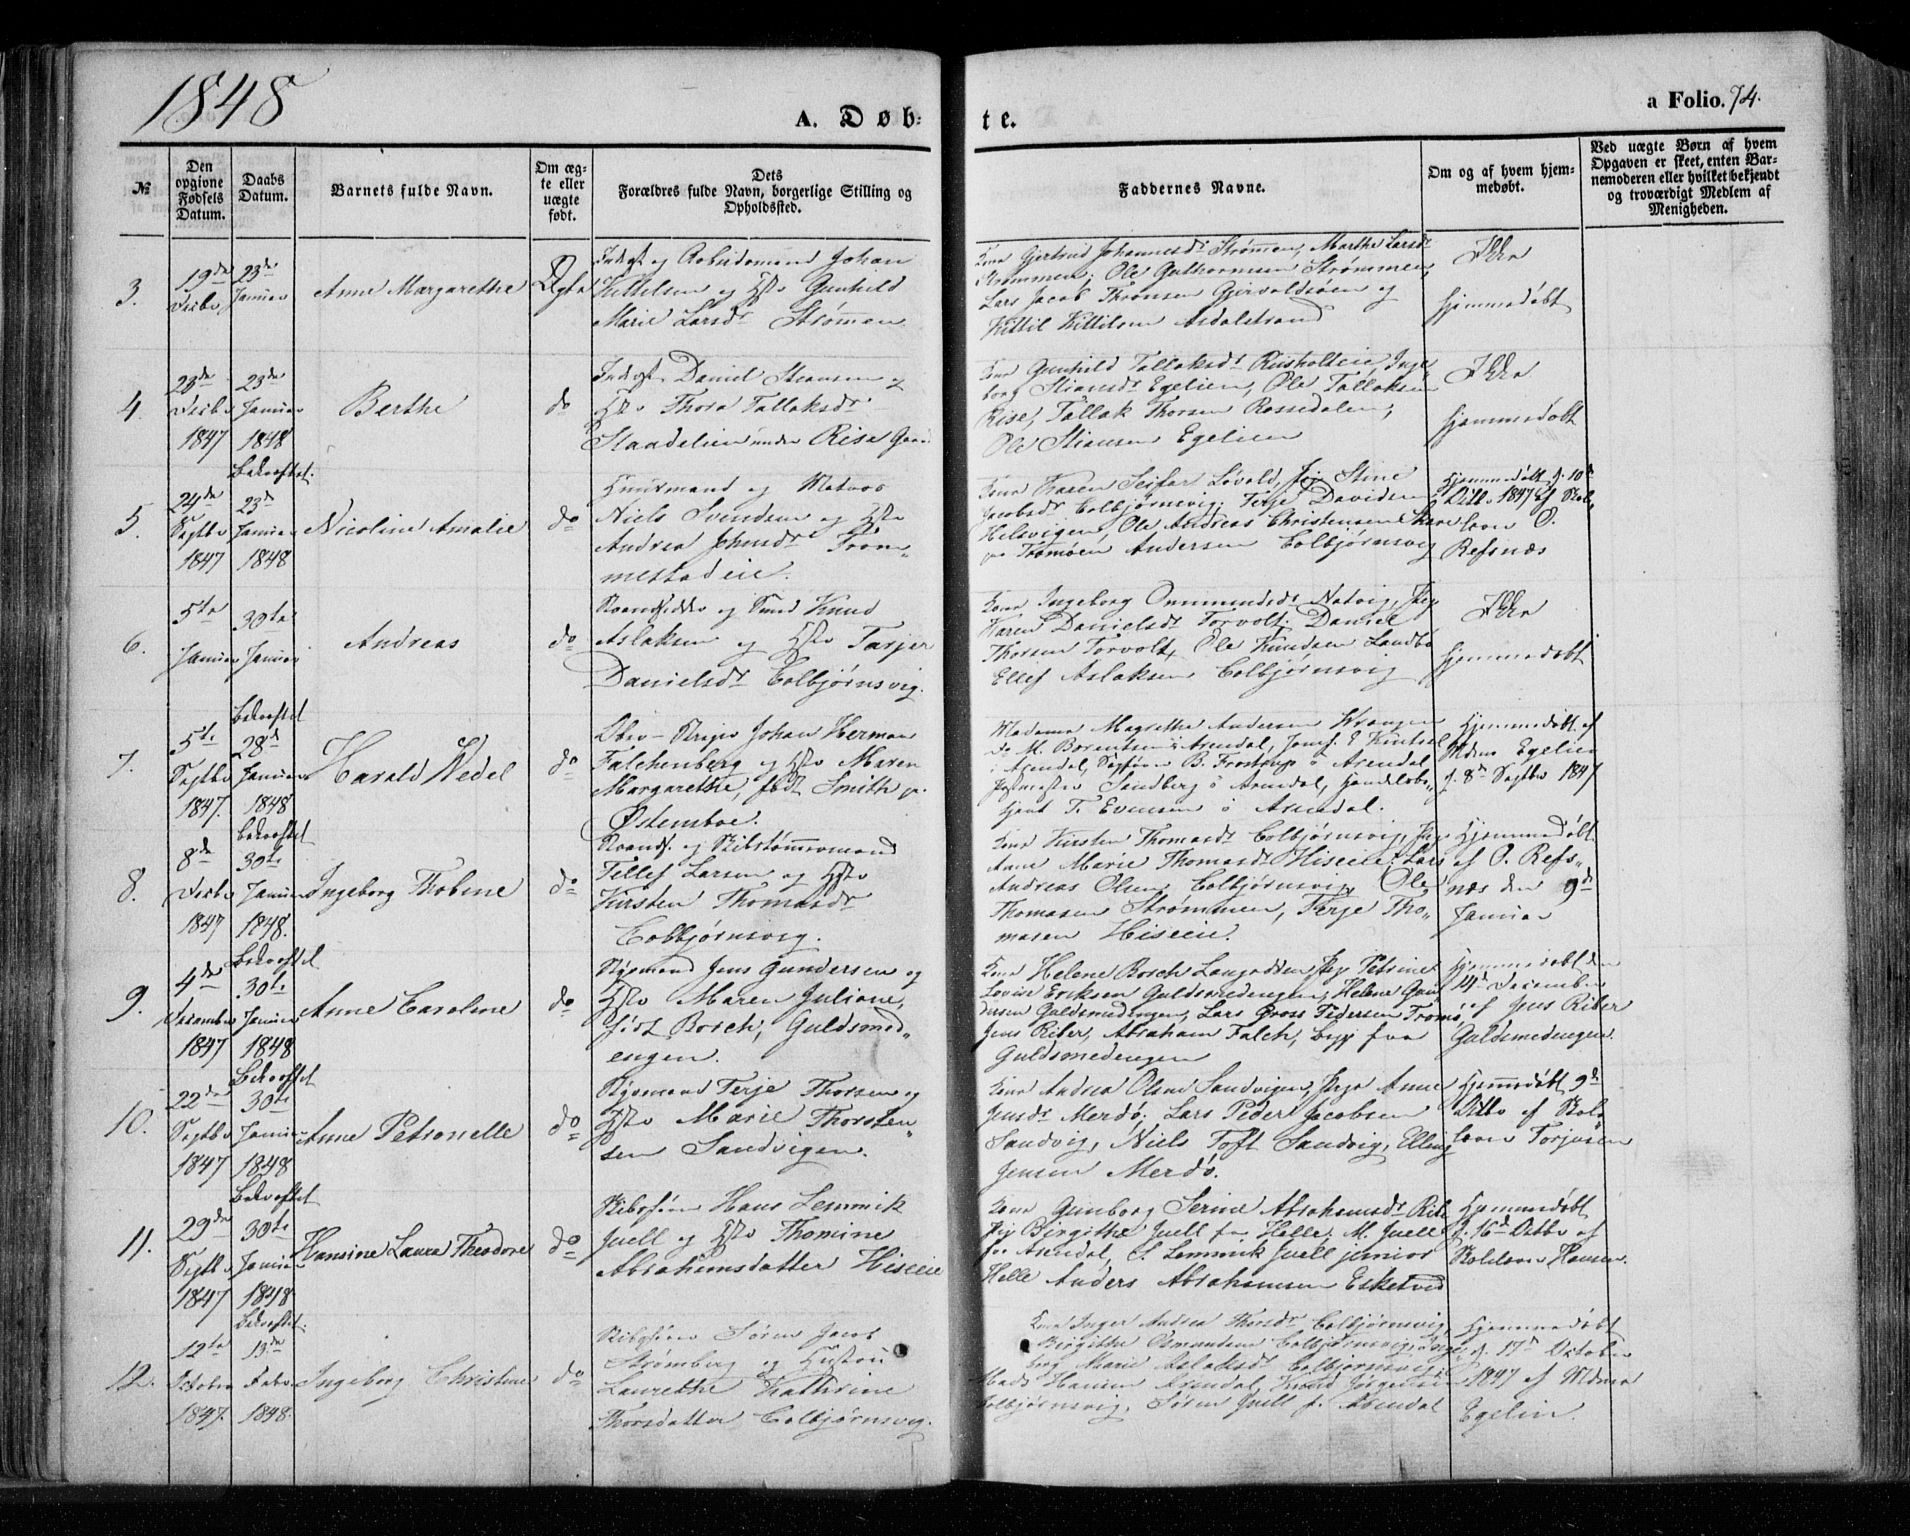 1848
A. Døb=
te.
a Folio. 74.
№
Den opgivne Fødsels Datum.
Daabs Datum.
Barnets fulde Navn.
Om ægte eller uægte født.
Dets Forældres fulde Navn, borgerlige Stilling og Opholdssted.
Faddernes Navne.
Om og af hvem hjemmedøbt.
Ved uægte Børn af hvem Opgaven er skeet, enten Barnemoderen eller hvilket bekjendt og troværdigt Medlem af Menigheden.
3.
19de Decbr
23de Januar
Anne Margarethe
Ægte
og Arbeidsmand Johan
Kittelsen og Hstr Gunhild
Marie Larsdr Strömen
Kone Gjertrud Johannesdr Strömen, Marthe Larsdr
Strömmen, Ole Guthormsen Strömmen,
Lars Jacob Thronsen Gjervoldsöen og
Kittil Kittilsen Asdalstrand
Ikke
hjemmedøbt
4.
23de Decbr 1847
23de Januar 1848
Berthe
do
Daniel Stiansen og
Hstr Thora Tallaksdr
under Rise
Kone Gunhild Tallaksdr Risholteie, Inge
borg Stiansdr Egelien, Ole Tallaksen
Rise, Tallak Thorsen Rossedalen,
Ole Stiansen Egelien
Ikke
hjemmedøbt
5.
24de Septbr 1847
Bekræftet.
23de Januar 1848
Nicoline Amalie
do
og Matros
Niels Svendsen og Hstr
Andrea Johnsdr Trom„
mestadeie.
Kone Karen Løvold, Pige Stine
Jacobsdr Colbjørnsvig, Terje Davidsen
Helsvigen, Ole Andreas Christensen
Tromøen Andersen Colbjørnsvig
Hjemmedøbt d. 10de
Octbr 1847 af Skole
lærer O.
Refsnæs
6.
5te Januar
30te Januar
Andreas
do
og Knud
Aslaksen og Hstr Tarjer
Danielsdr Colbjørnsvig.
Kone Ingeborg Ommundsdr Natvig, Pige
Karen Danielsdr Torvolt, Daniel
Thorsen Torvolt, Ole Knudsen Landbö
Ellef Aslaksen Colbjørnsvig
Ikke
hjemmedøbt
7.
5te Septbr 1847.
Bekræftet
28de Januar 1848
Harald Wedel
do
Johan Herman
Falchenberg og Hstr Maren
Margarethe, født Smith p.
Østensboe.
Madame Magrethe Andersen
do M. Borentsen i Arendal, Jomf. E
i Arendal, B. Frostrup i Arendal
Postmester Sandberg i Arendal, Handelsbe„
tjent T. Evensen i Arendal.
Hjemmedøbt af
Mdme Egelien
d. 8de Septbr 1847
8.
8de Decbr 1847
Bekræftet
30te Januar 1848.
Ingeborg Thobine
do
Tellef Larsen og Hstr
Kirsten Thomasdr
Colbjørnsvig.
Kone Kirsten Thomasdr Colbjørnsvig, Pige
Anne Marie Thomasdr Hiseeie, Lars
Andreas Olsen Colbjørnsvig, Ole
Thomasen Strømmen, Terje Tho„
masen Hiseeie.
Hjemmedøbt
af O. Refs„
næs den 9de
Januar
9.
4de December 1847
Bekræftet
30te Januar 1848
Anne Caroline
do
Jens Gundersen og
Hstr Maren Juliane,
født Bosch, Guldsmed„
engen.
Kone Helene Bosch Pige Petrine
Lovise Eriksen Guldsmedengen, Helene Gun
dersen Guldsmedengen, Lars Gross Pedersen Tromö,
Jens Riber, Abraham Falch, begge fra
Guldsmedengen
Hjemmedøbt den
14de December
af Jens Riber
Guldsmedengen.
10.
22de Septbr 1847
Bekræftet
30te Januar 1848
Anne Petronelle
do
Terje Thorsen og
Hstr Marie Thorsten„
sen Sandvigen.
Kone Andrea Olsen Sandvigen, Pige Anne
Jensdr Merdö, Lars Peder Jacobsen
Sandvig, Niels Toft Sandvig, Elling
Jensen Merdö.
Hjemmedøbt 9de
Octbr af Skole
lærer Torjusen
11.
29de Septbr 1847
Bekræftet
30te Januar 1848
Hansine Laura Theodore
do
Hans Lemmik
Juell og Hstr Thomine
Abrahamsdatter Hiseeie
Kone Gunborg Serine Abrahamsdr
Pige Birgithe Juell fra Helle, M. Juell
fra Arendal, S. Lemmik Juell junior
Helle Anders Abrahamsen Eskelved
Hjemmedøbt
d. 16de Octbr af
Skolelærer Hansen.
12.
12te October 1847.
Bekræftet.
13de Febr 1848.
Ingeborg Christine
do
Søren Jacob
Strømberg og Hustru
Laurethe Kathrine
Thorsdatter Colbjørnsvig.
Kone Inger Andrea Thorsdr Colbjørnsvig,
Birgithe Osmundsen Colbjørnsvig, Inge
borg Marie Aslaksdr Colbjørnsvig,
Mads Hansen Arendal, Knud Jørgensen
Colbjørnsvig, Søren Juell f. Arendal
Hjemmedøbt
d. 17de October
1847 af Mdme
Egelien.